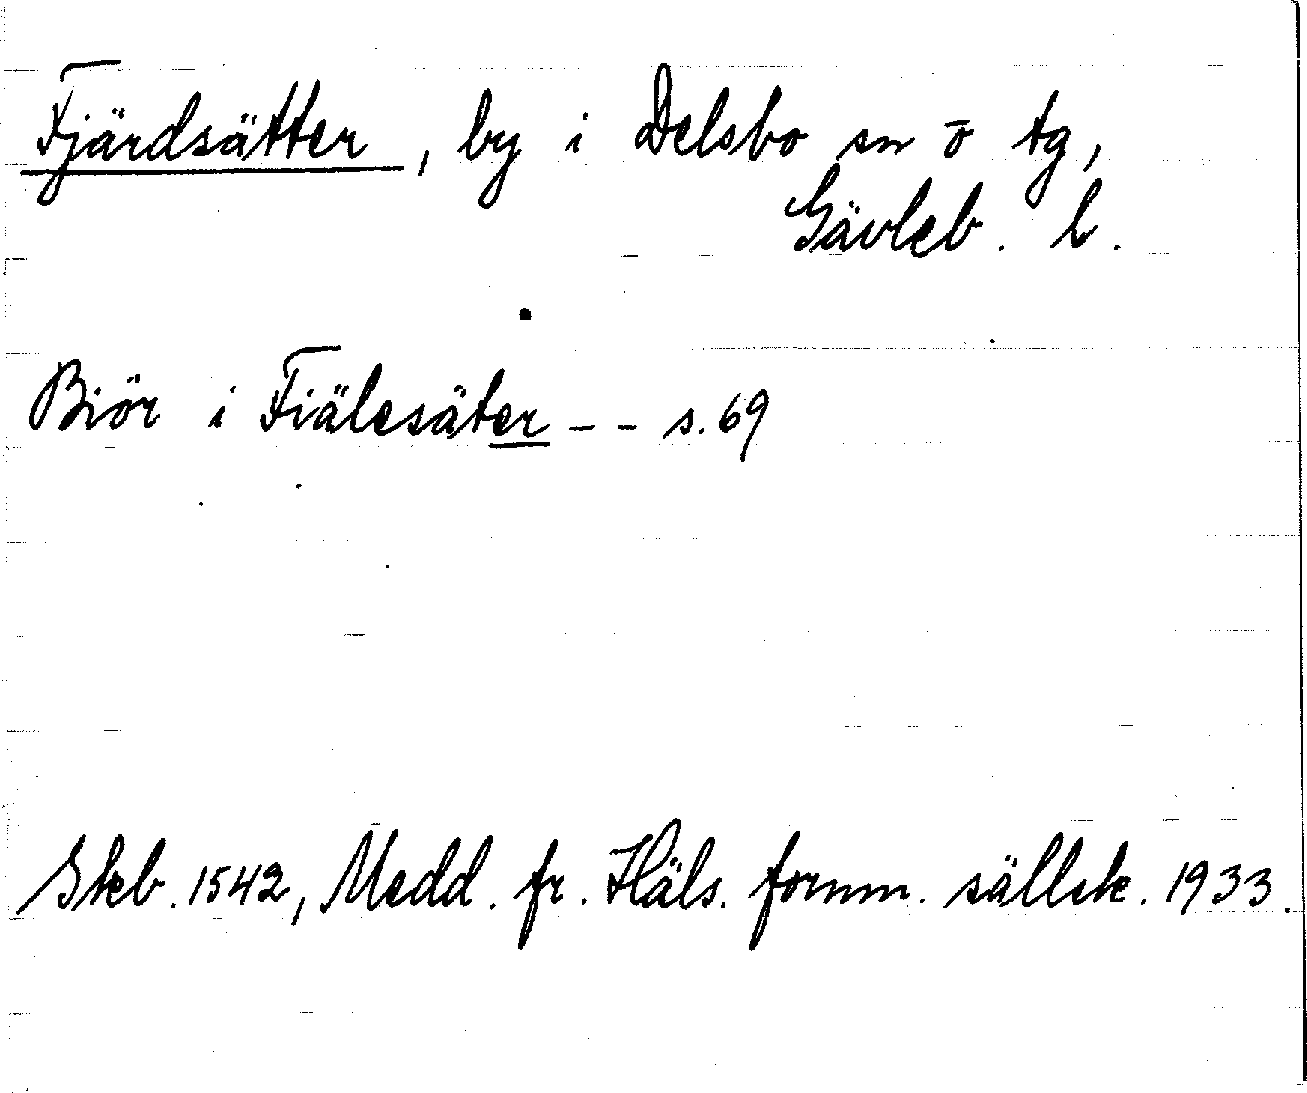 Fjärdsätter, by i Delsbo sn o tg,
Gävleb. l.
Biör i Fiälesäter - - s. 69
Skb. 1542, Medd. fr. Häls. fornm. sällsk. 1933.